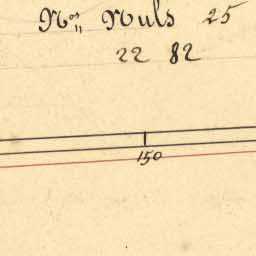 Nos Nuls 25
22 82
150